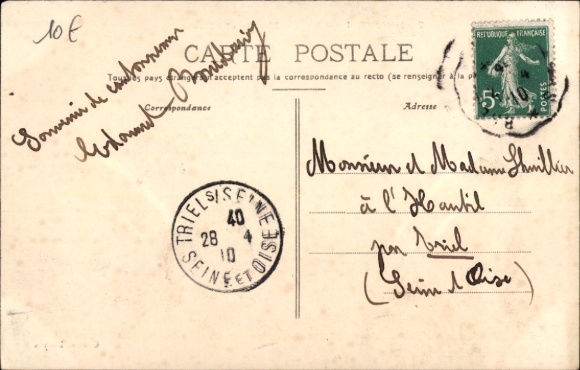 10 €
CARTE POSTALE
Tous les pays étrangers n'acceptent pas la correspondance au recto (se renseigner à la
Correspondance
Adresse
Souvenir de
REPUBLIQUE FRANÇAISE
5c
POSTES
TRIEL S/SEINE
40
28 4
10
SEINE ET OISE
Monsieur et Madame
à l'Hautil
par Triel
(Seine et Oise)